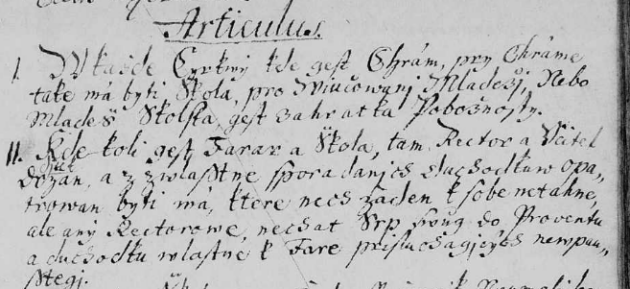 Articulus.
I. W každe Cyrkwj kde gest Chrám, pry Chráme
také má byti Škola, pro Wiučowanj Mladeži, Nebo
Mladež Školska gest zahratka Pobožnosty.
II. Kde koli gest Farar a Škola, tam Rector a Učitel
držan, a z zwlasstne sporadanjch duchodkuw opa„
trowan byti ma, ktere nech žaden k sobe netahne,
ale any Rectorowe, nechat Srp swug do Proventu
a duchodku wlastne k Fare prisluchagjcých newpau„
sstegj.